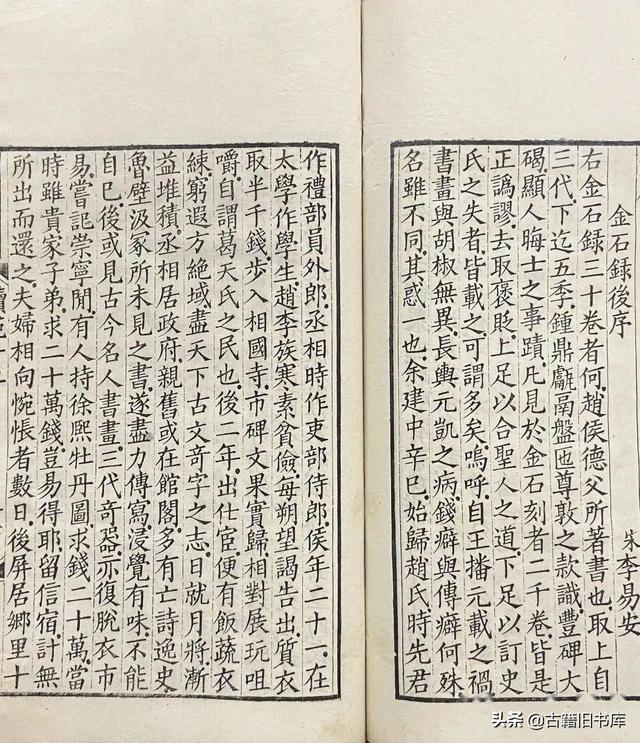 金石錄後序
宋李易安
右金石錄三十卷者何。趙侯德父所著書也。取上自
三代。下迄五季。鍾鼎甗鬲盤匜尊敦之款識。豐碑大
碣。顯人晦士之事蹟。凡見於金石刻者二千卷。皆是
正譌謬。去取褒貶。上足以合聖人之道。下足以訂史
氏之失者。皆載之。可謂多矣。嗚呼。自王播元載之禍。
書畫與胡椒無異。長輿元凱之病。錢癖與傳癖何殊。
名雖不同。其惑一也。余建中辛巳。始歸趙氏。時先君
作禮部員外郎。丞相時作吏部侍郎。侯年二十一。在
太學作學生。趙李族寒。素貧儉。每朔望謁告出。質衣
取半千錢。步入相國寺。市碑文果實歸。相對展玩咀
嚼。自謂葛天氏之民也。後二年。出仕宦。便有飯蔬衣
練。窮遐方絕域。盡天下古文奇字之志。日就月將。漸
益堆積。丞相居政府。親舊或在館閣。多有亡詩逸史。
魯壁汲冢所未見之書。遂盡力傳寫。浸覺有味。不能
自已。後或見古今名人書畫。三代奇器。亦復脫衣市
易。嘗記崇寧閒。有人持徐熙牡丹圖。求錢二十萬。當
時雖貴家子弟。求二十萬錢。豈易得耶。留信宿。計無
所出而還之。夫婦相向惋悵者數日。後屏居鄉里十
头条 @古籍旧书库